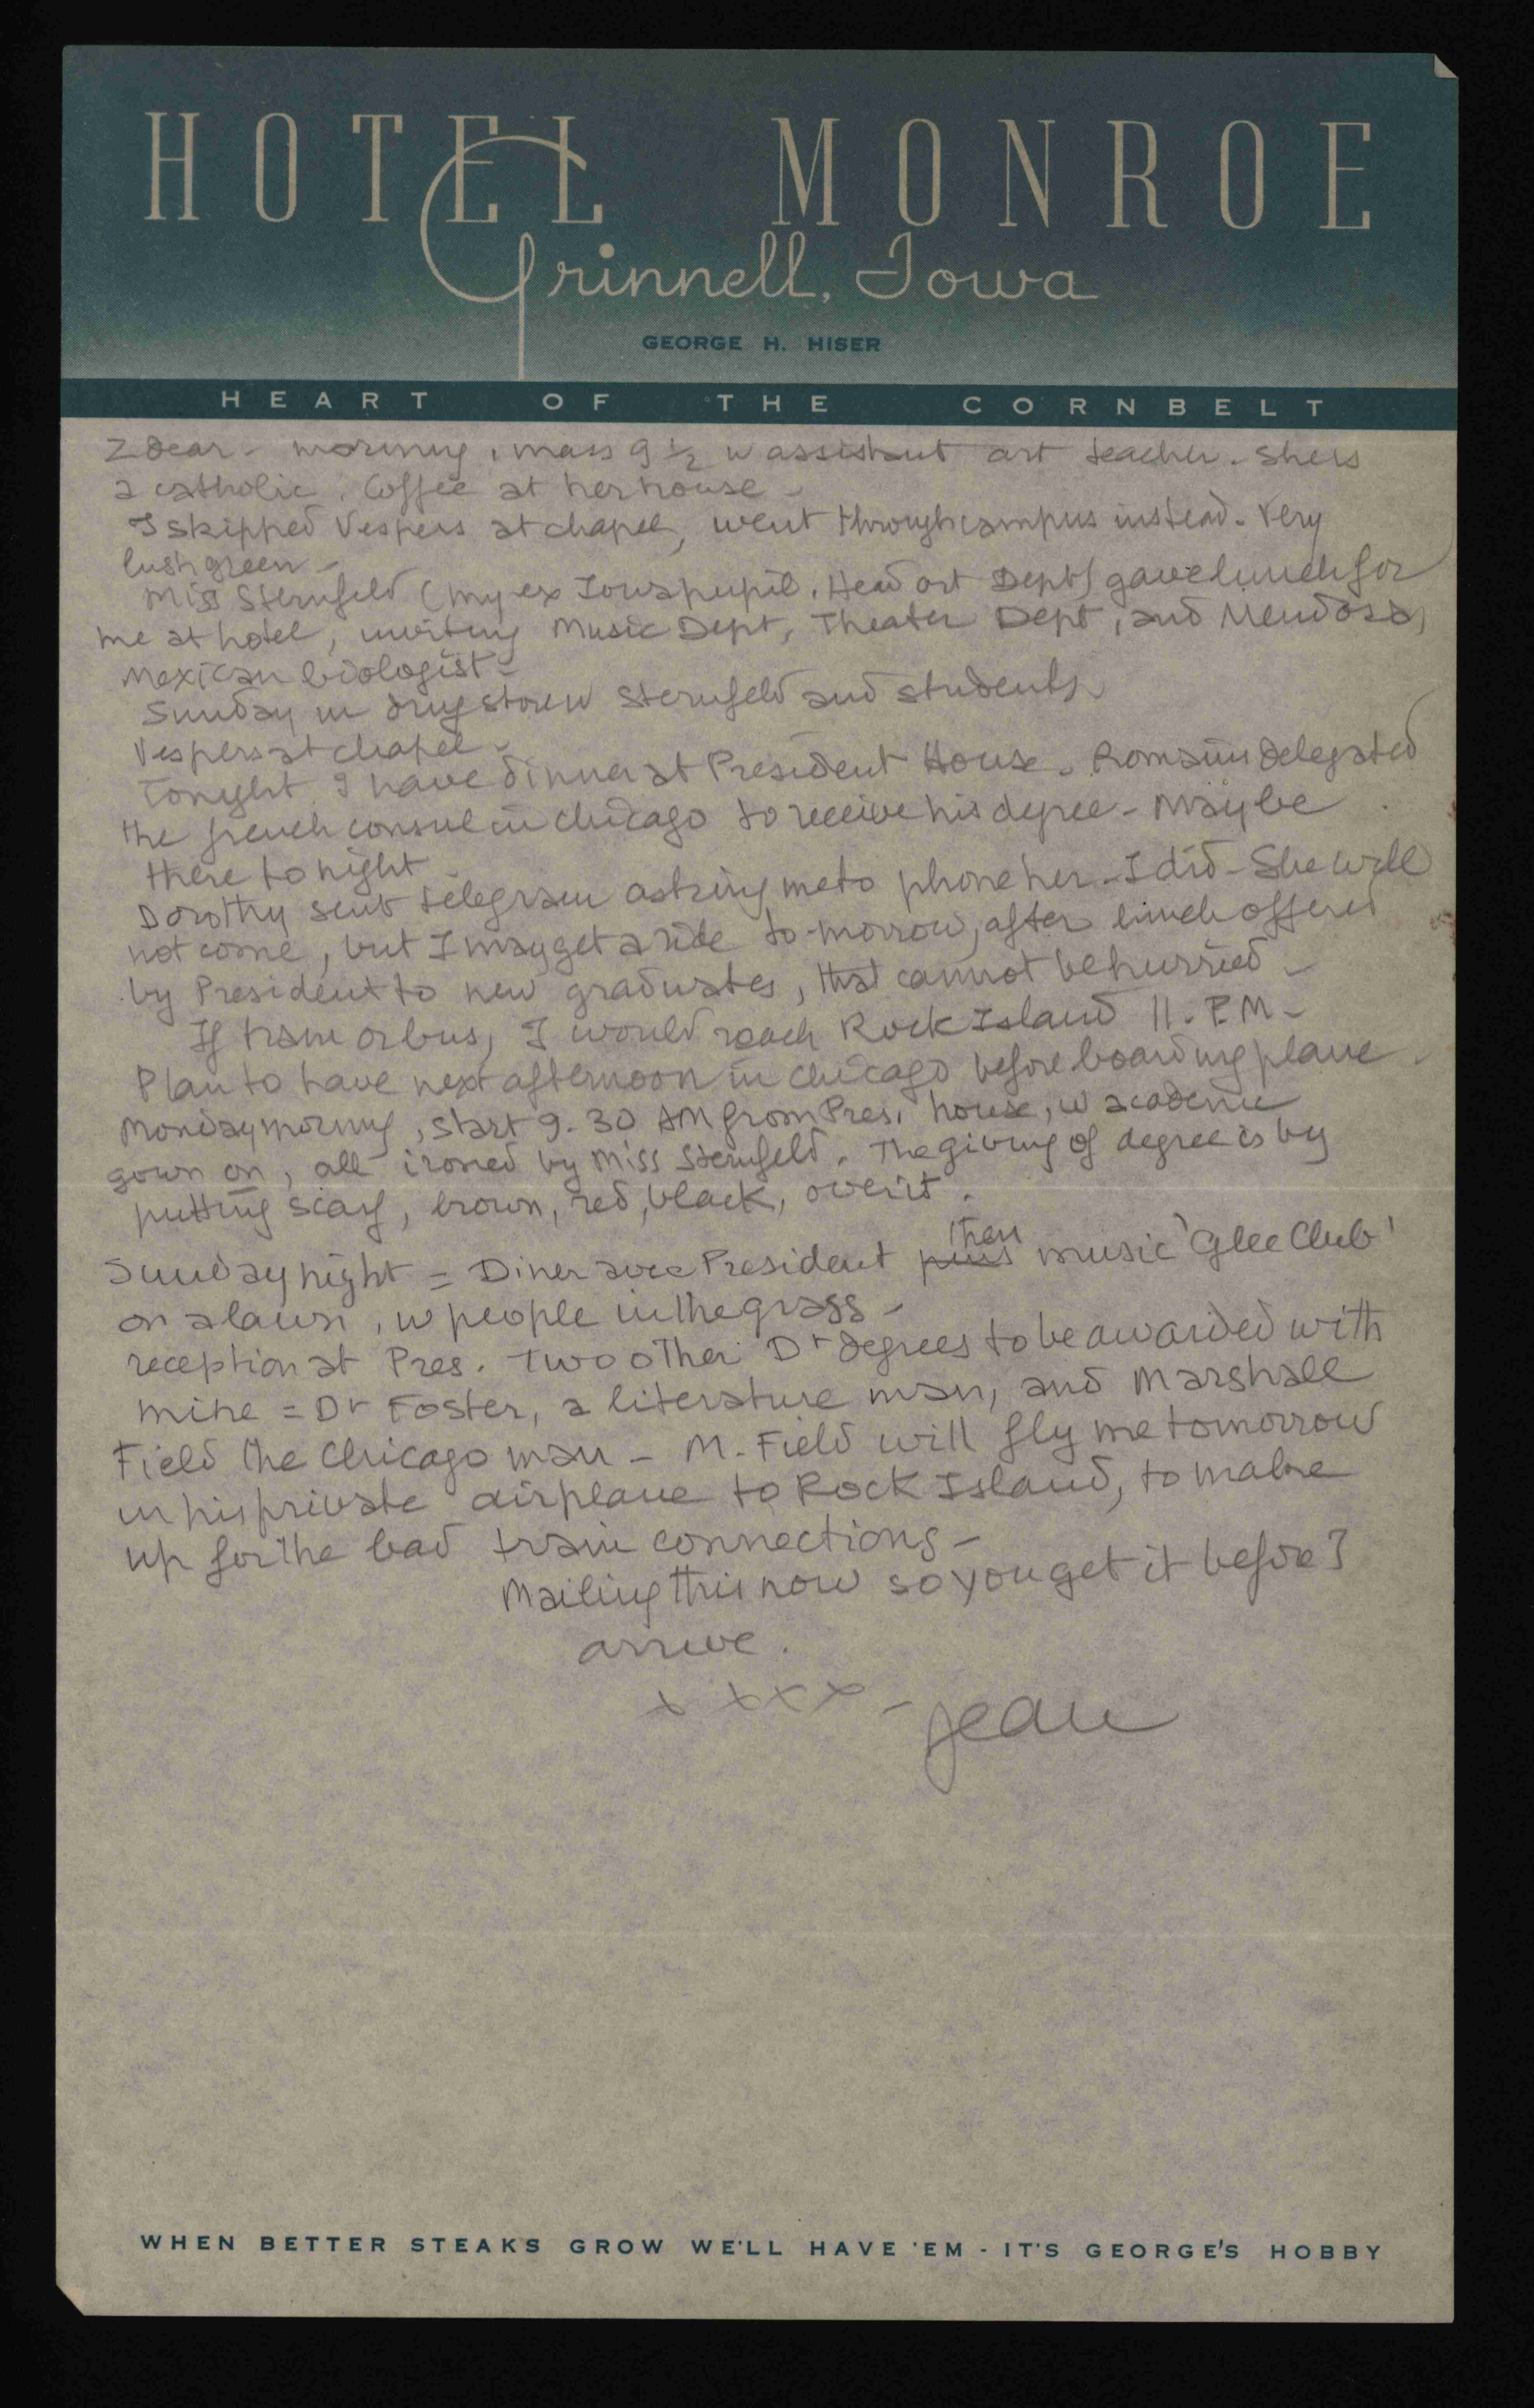 HOTEL MONROE
Grinnell, Iowa
GEORGE H. HISER
HEART OF THE CORNBELT
Z dear - morning, mass 9 1/2 w assistant art teacher. She is
a catholic. Coffee at her house -
I skipped Vespers at chapel, went through campus instead. Very
lush green -
Miss Sternfeld (my ex Iowa pupil. Head art Dept) gave lunch for
me at hotel, inviting Music Dept, Theater Dept, and Mendosa,
mexican biologist -
Sunday in drugstore w Sternfeld and students
Vespers at chapel -
Tonight I have dinner at President House. Romains delegated
the french consul in Chicago to receive his degree - May be
there to night
Dorothy sent telegram asking me to phone her - I did - She will
not come, but I may get a ride to-morrow, after lunch offered
by President to new graduates, that cannot be hurried -
If train or bus, I would reach Rock Island 11. P.M -
Plan to have next afternoon in Chicago before boarding plane.
Monday morning, start 9.30 AM from Pres. house, w academic
gown on, all ironed by Miss Sternfeld. The giving of degree is by
putting scarf, brown, red, black, over it.
Sunday night = Diner avec President puis then music 'Glee Club'
on a lawn, w people in the grass -
reception at Pres. Two other Dr degrees to be awarded with
mine = Dr Foster, a literature man, and Marshall
Field the Chicago man - M. Field will fly me tomorrow
in his private airplane to Rock Island, to make
up for the bad train connections -
Mailing this now so you get it before I
arrive.
x xxx - Jean
WHEN BETTER STEAKS GROW WE'LL HAVE 'EM - IT'S GEORGE'S HOBBY